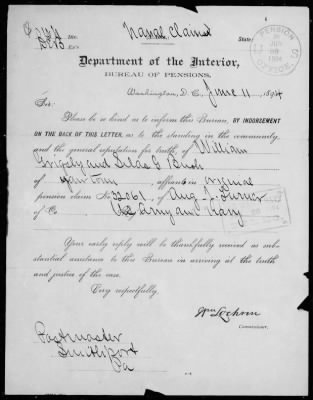 Inv. Naval Claimant State,
Department of the Interior,
BUREAU OF PENSIONS,
Washington, D. C., June 11, 1894
Sir:
Please be so kind as to inform this Bureau, BY INDORSEMENT
ON THE BACK OF THIS LETTER, as to the standing in the community,
and the general reputation for truth, of William
Grigsby and Silas G Bush
of your town, affiants in original
pension claim No. 32061, of Aug. J. Turner
of Co. US Army and Navy
Your early reply will be thankfully received as sub-
stantial assistance to this Bureau in arriving at the truth
and justice of the case.
Very respectfully,
Wm Lochren
Commissioner.
Postmaster
Smithport
Pa
PENSION
OFFICE
JUN
1894